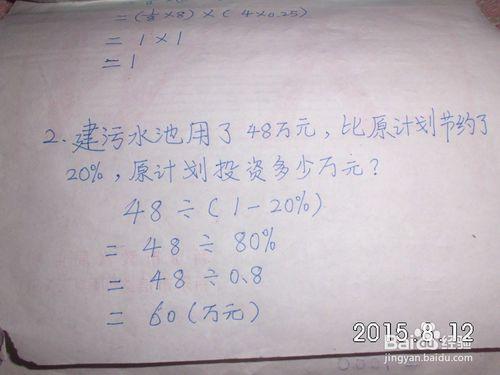 =(⅛×8)×(4×0.25)
= 1×1
= 1
2. 建污水池用了48万元,比原计划节约了
20%,原计划投资多少万元?
48÷(1-20%)
= 48÷80%
= 48÷0.8
= 60(万元)
2015.8.12
Baidu经验
jingyan.baidu.com